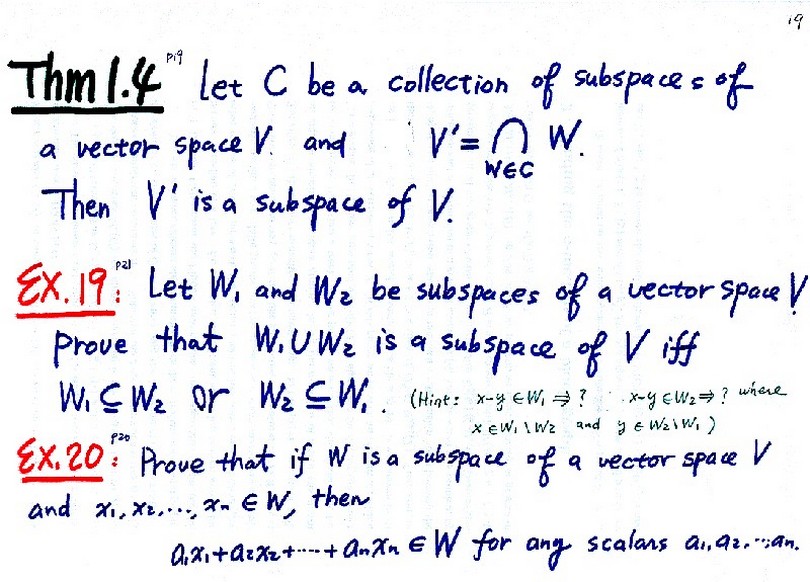 19
Thm 1.4 p19 Let C be a collection of subspaces of
a vector space V. and V' = ⋂ W.
W∈C
Then V' is a subspace of V.
Ex. 19: p21 Let W₁ and W₂ be subspaces of a vector space V.
Prove that W₁ ∪ W₂ is a subspace of V iff
W₁ ⊆ W₂ or W₂ ⊆ W₁. (Hint: x-y ∈ W₁ ⇒ ? x-y ∈ W₂ ⇒ ? where
x ∈ W₁ \ W₂ and y ∈ W₂ \ W₁)
Ex. 20: p20 Prove that if W is a subspace of a vector space V
and x₁, x₂, ..., xₙ ∈ W, then
a₁x₁ + a₂x₂ + ····· + aₙxₙ ∈ W for any scalars a₁, a₂, ..., aₙ.